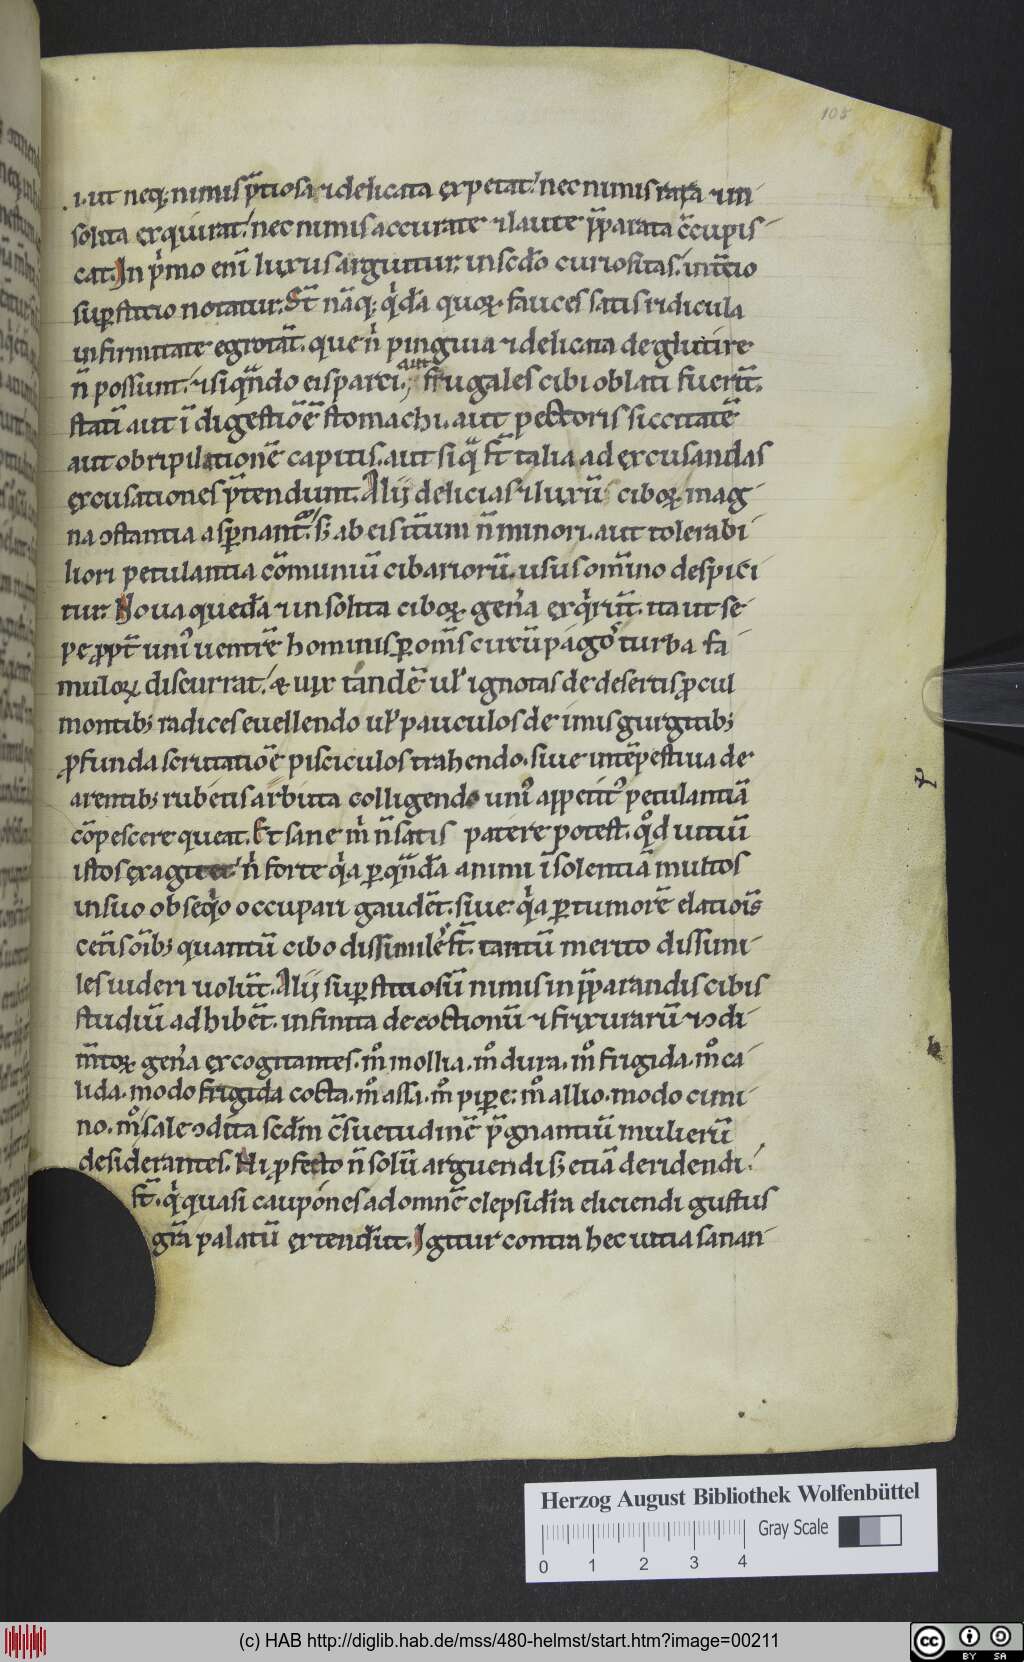 105
.i. ut neq; nimis p̄tiosa ⁊ delicata expetat. nec nimis rara ⁊ in
solita exquirat. nec nimis accurate ⁊ laute p̄parata c̄cupis
cat. In pⁱmo eni̅ luxus arguitur. in scd̅o curiositas. in t̅cio
suꝑstitio notatur. St̅ na̅q; qⁱda̅ quoꝝ fauces satis ridicula
infirmitate egrota̅t. que n̅ pinguia ⁊ delicata deglutire
n̅ possunt. ⁊ si qn̅do eis parci aut frugales cibi oblati fueri̅t.
stati̅ aut i̅digestio̅e̅ stomachi. aut pectoris siccitate̅
aut obripilatione̅ capitis. aut si q̅ st̅ talia ad excusandas
excusationes p̄tendunt. Alij delicias ⁊ luxu̅ ciboꝝ mag
na ꝯstantia aspernant᷑. s; ab eis it̅um n̅ minori. aut tolerabi
liori petulantia co̅muniu̅ cibarioru̅ usus om̅ino despici
tur. Noua queda̅ ⁊ insolita ciboꝝ gen̅a exqⁱru̅t. ita ut se
pe ꝓpt̅ uniꝰ uentre̅ hominis ꝑ om̅s curu̅ pago turba fa
muloꝝ discurrat. & uix tande̅ ul̅ ignotas de desertis ꝓcul
montib; radices euellendo ul̅ pauculos de imis gurgitib;
ꝓfunda scrutatio̅e pisciculos trahendo. siue inte̅pestiua de
arentib; rubetis arbuta colligendo uniꝰ appetitꝰ petulantia̅
co̅pescere queat. Et sane m̅ n̅ satis patere potest. qͦd uitiu̅
istos exagitet. n̅ forte qⁱa ꝑ qn̅da̅ animi i̅solentia̅ multos
in suo obseqⁱo occupari gaude̅t. siue qⁱa ꝑ tumore̅ elatiois̅
cet̅is o̅ib; quantu̅ cibo dissimiles̅ st̅. tantu̅ merito dissimi
les uideri uolu̅t. Alij suꝑstitiosu̅ nimis in p̄parandis cibis
studiu̅ adhibe̅t. infinita decoctionu̅ ⁊ frixuraru̅ ⁊ ꝯdi
m̅toꝝ gen̅a excogitantes. mͦ mollia. mͦ dura. mͦ frigida. mͦ ca
lida. modo frigida cocta. mͦ assa. mͦ pipere. mͦ allio. modo cimi
no. mͦ sale ꝯdita scd̅m c̅suetudine̅ p̄gnantiu̅ mulieru̅
desiderantes. Hi ꝓfecto n̅ solu̅ arguendi s; etia̅ deridendi
st̅. qⁱ quasi caupones ad omne̅ clepsidra̅ eliciendi gustus
gra̅ palatu̅ extendu̅t. Igitur contra hec uitia sanan
Herzog August Bibliothek Wolfenbüttel
Gray Scale
0 1 2 3 4
(c) HAB http://diglib.hab.de/mss/480-helmst/start.htm?image=00211
cc BY SA